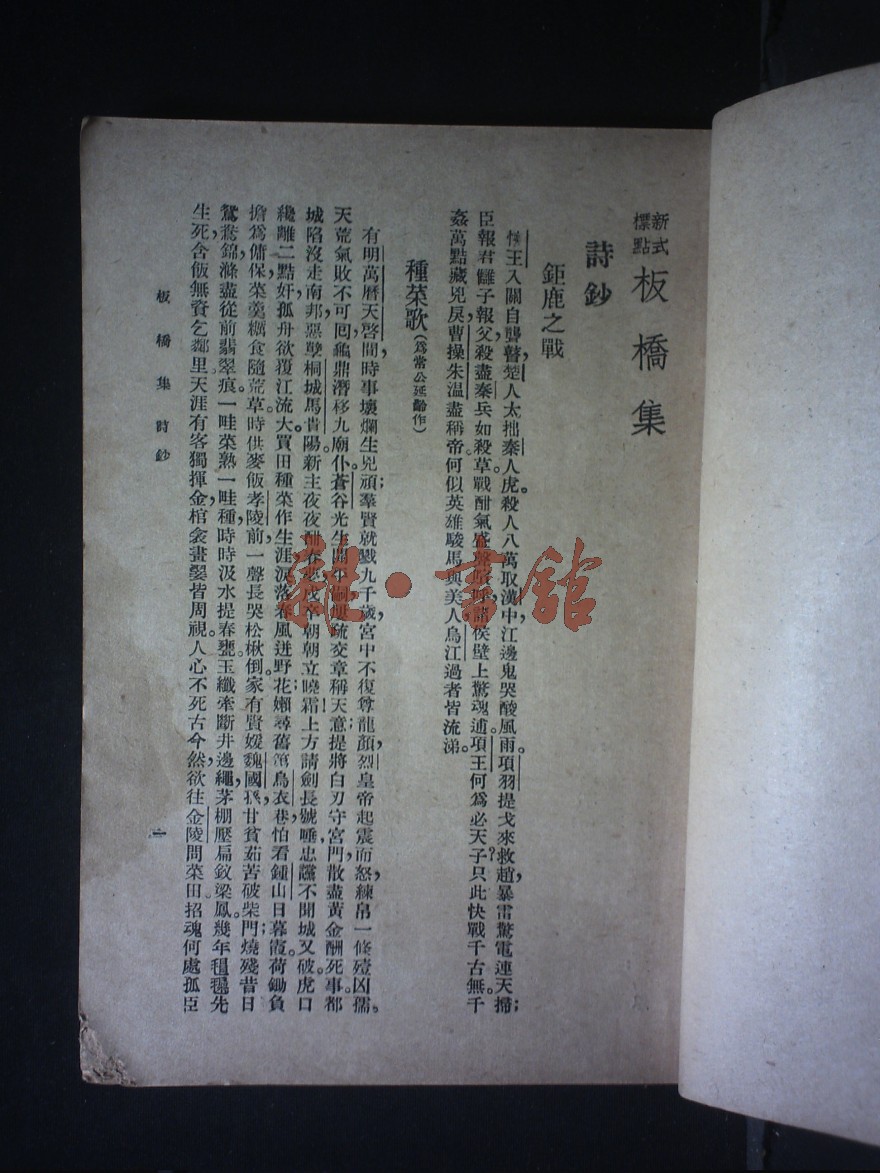 新式標點 板橋集
詩鈔
鉅鹿之戰
懷王入關自聾瞽,楚人太拙秦人虎。殺人八萬取漢中,江邊鬼哭酸風雨。項羽提戈來救趙,暴雷驚電連天掃;
臣報君讎子報父,殺盡秦兵如殺草。戰酣氣盛聲喧呼,諸侯壁上驚魂逋。項王何爲必天子?只此快戰千古無。千
姦萬點藏兇戾,曹操朱溫盡稱帝。何似英雄駿馬與美人,烏江過者皆流涕。
種菜歌(爲常公延齡作)
有明萬曆天啓間,時事壞爛生兇頑;羣賢就戮九千歲,宮中不復尊龍顏。烈皇帝起震而怒,練帛一條殪凶孺,
天荒氣敗不可囘,龜鼎潛移九廟仆。蒼谷先生開平嗣,硬疏交章稱天意;提將白刃守宮門,散盡黃金酬死事。都
城陷沒走南邦,惡孽桐城馬貴陽。新主夜夜酣春夢,戍卒朝朝立曉霜!上方請劍長號唾,忠讜不聞城又破。虎口
纔離二點奸,孤舟欲覆江流大。買田種菜作生涯,淚落春風迸野花;嬾尋舊第烏衣巷,怕看鍾山日暮霞。荷鋤負
擔爲傭保,菜羹糲食隨荒草。時供麥飯孝陵前,一聲長哭松楸倒。家有賢媛魏國孫,甘貧茹苦破柴門;燒殘昔日
鴛鴦錦,滌盡從前翡翠痕。一畦菜熟一畦種,時時汲水提春甕。玉纖牽斷井邊繩,茅棚壓扁釵梁鳳。幾年先
生死舍飯無資,乞鄰里。天涯有客獨揮金,棺衾畫翣皆周視。人心不死古今然,欲往金陵問菜田。招魂何處孤臣
板橋集 詩鈔
一
雜·書館